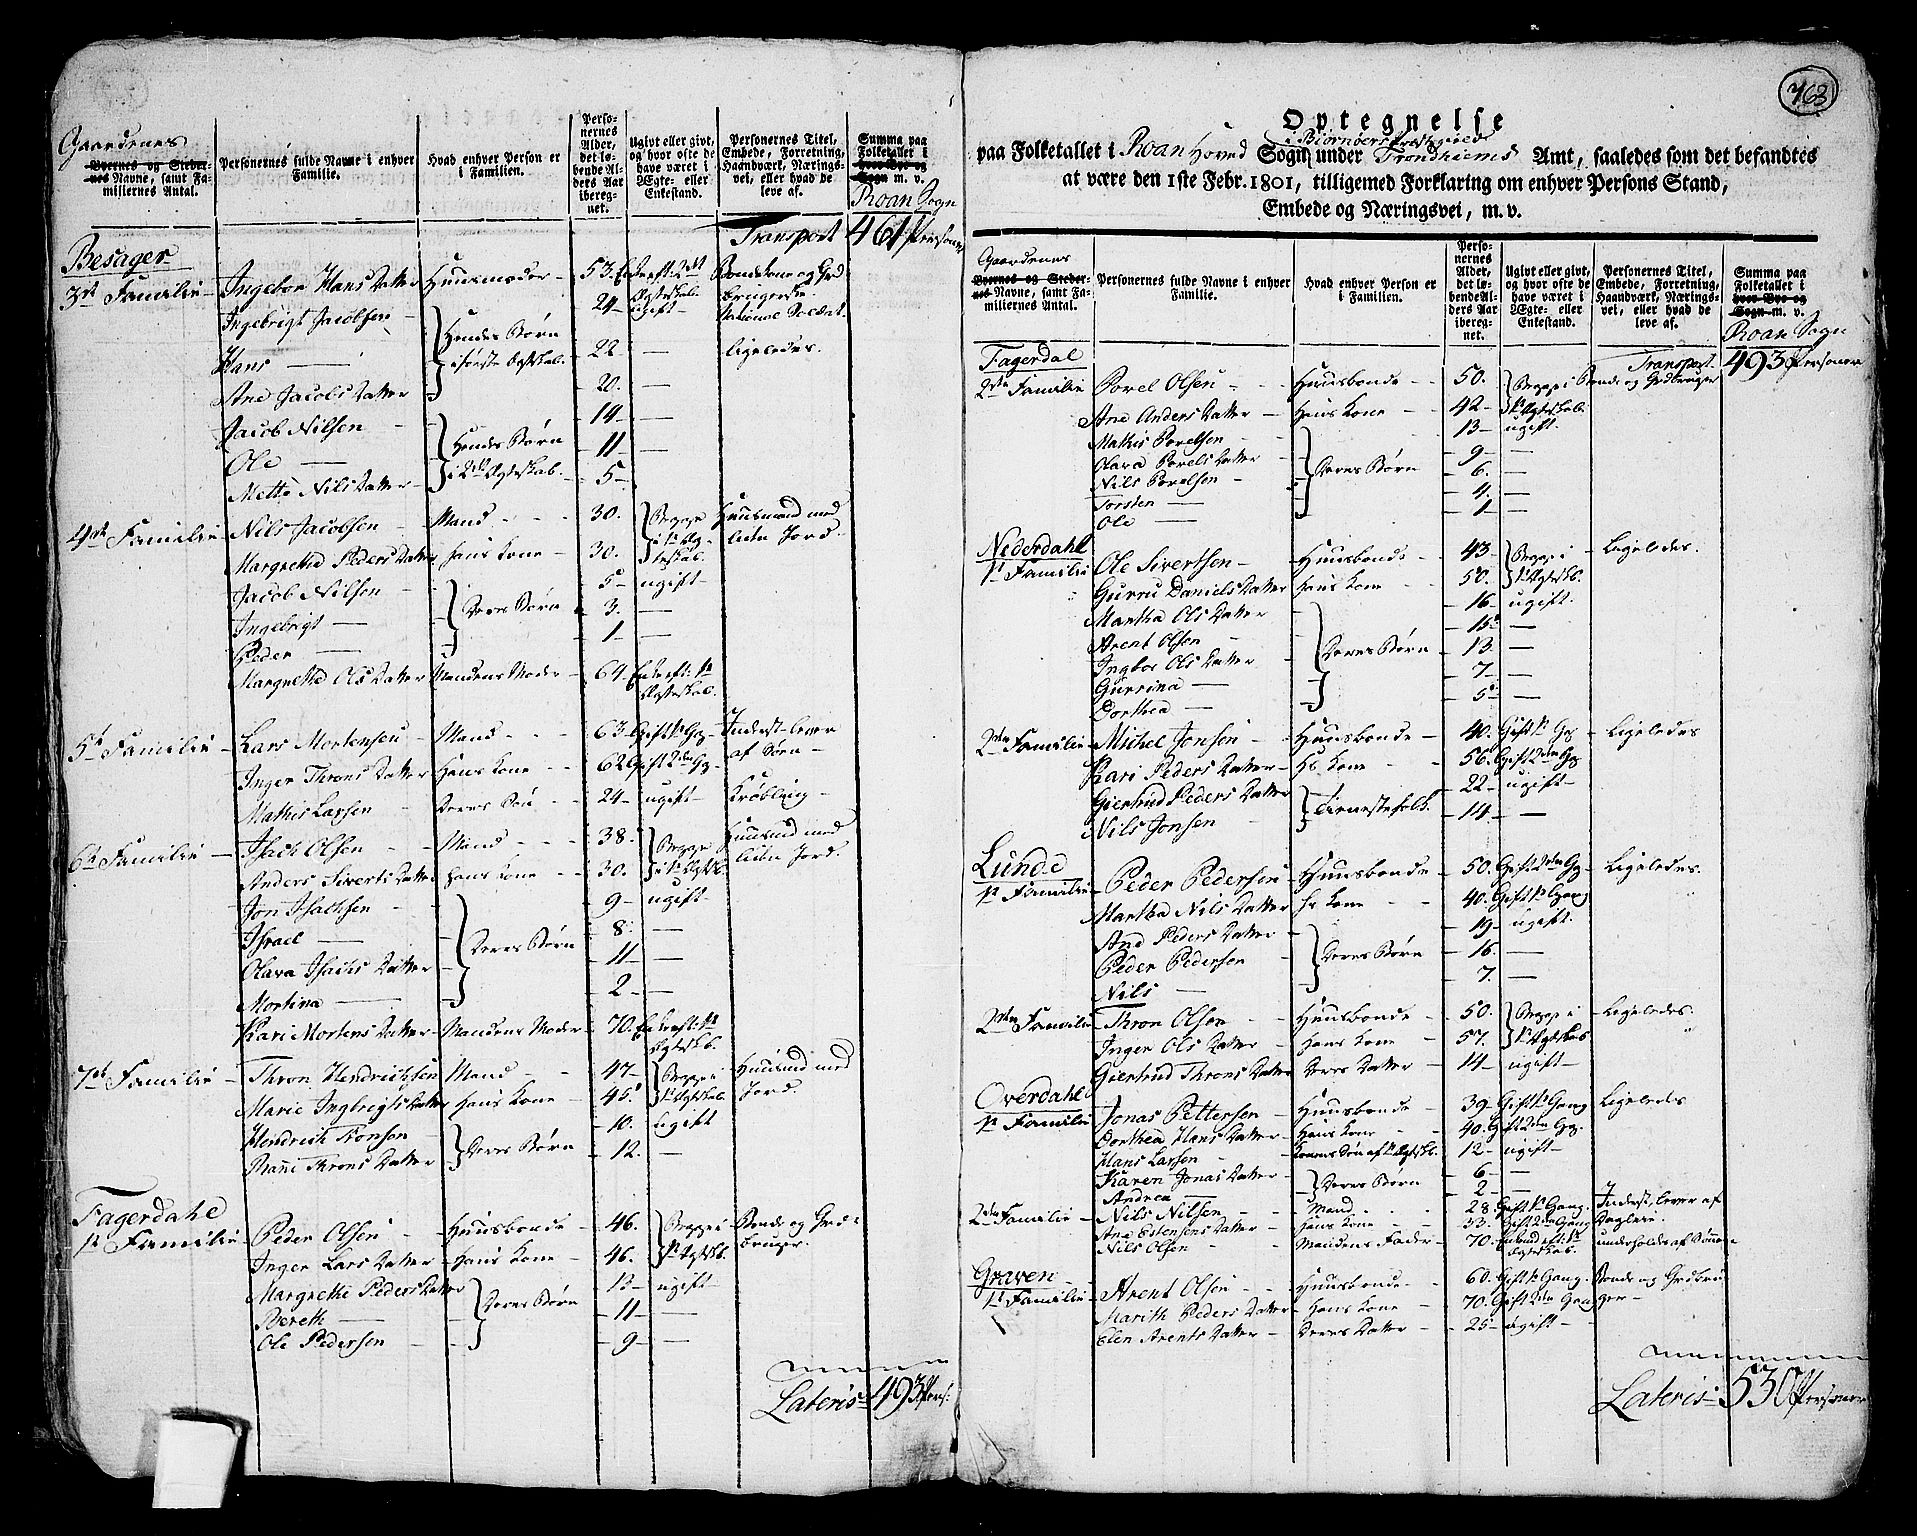 Gaardenes
Byernes og Stedernes Navne, samt Familiernes Antal.
Personernes fulde Navne i enhver Familie.
Hvad enhver Person er i Familien.
Personernes Alder, det løbende Alders Aar iberegnet.
Ugivt eller givt, og hvor ofte de have været i Ægte- eller Enkestand.
Personernes Titel, Embede, Forretning, Haandværk, Næringsvei, eller hvad de leve af.
Summa paa Folketallet i hver Bye og Sogn m. v.
Roan Sogn
Transport 461 Personer
Besager
3de Familie Ingebor Hans Datter Huusmoder 53. Enke eft: 2det Ægteskab. Bondekone og Grdbrugerske
Ingebrigt Jacobsen Hendes Børn i første Ægteskab. 24 ugift National Soldat.
Hans — 22 — ligeledes.
Ane Jacobs Datter 20. —
Jacob Nilsen Hendes Børn i 2det Ægteskab. 14 —
Ole — 11 —
Mette Nils Datter 5 —
4de Familie Nils Jacobsen Mand 30. Begge i 1te Ægteskab. Huusmand med liden Jord.
Margrethe Peders Datter hans Kone 30.
Jacob Nilsen Deres Børn 5 ugift
Ingebrigt — 3. —
Peder — 1 —
Margrethe Ols Datter Mandens Moder 64. Enke eft: 1te Ægteskab.
5te Familie Lars Mortensen Mand 63 Gift 1te Gg Inderst lever af Børn
Inger Throns Datter Hans Kone 62 Gift 2den Gg
Mathis Larsen Deres Søn 24 ugift Krøbling
6te Familie Isach Olsen Mand 38. Begge i 1te Ægteskb. Huusmd med liden Jord.
Anders Siverts Datter hans Kone 30.
Jon Isachsen Deres Børn 9 ugift
Israel — 8. —
Olava Isachs Datter 11 —
Mortina — 2 —
Kari Mortens Datter Mandens Moder 70. Enke eft: 1te Ægteskb.
7de Familie Thron Hendrichsen Mand 47 Begge i 1te Ægteskab. Huusmd med Jord.
Marie Ingbrigts Datter hans Kone 45.
Hendrich Tronsen Deres Børn 10. ugift
Rane Throns Datter 12. —
Fagerdahl
1te Familie Peder Olsen Huusbonde 46. Begge i 1te Ægteskb. Bonde og Grdbruger.
Inger Lars Datter Hans Kone 46.
Margrethe Peders Datter Deres Børn 13 ugift
Bereth — 11 —
Ole Pedersen 9 —
Lateris 493 Pers:
768
Optegnelse
paa Folketallet i Roan Hoved Sogn i Biørnøers Præstegield under Trondhiems Amt, saaledes som det befandtes
at være den 1ste Febr. 1801, tilligemed Forklaring om enhver Persons Stand,
Embede og Næringsvei, m. v.
Gaardenes
Byernes og Stedernes Navne, samt Familiernes Antal.
Personernes fulde Navne i enhver Familie.
Hvad enhver Person er i Familien.
Personernes Alder, det løbende Alders Aar iberegnet.
Ugivt eller givt, og hvor ofte de have været i Ægte- eller Enkestand.
Personernes Titel, Embede, Forretning, Haandværk, Næringsvei, eller hvad de leve af.
Summa paa Folketallet i hver Bye og Sogn m. v.
Roan Sogn
Transport 493 Personer
Fagerdal
2den Familie Povel Olsen Huusbonde 50. Begge i 1te Ægteskab. Bonde og Grdbruger
Ane Anders Datter Hans Kone 42
Mathis Povelsen Deres Børn 13 ugift
Olava Povels Datter 9 —
Nils Povelsen 6. —
Torsten — 4. —
Ole — 1 —
Nederdahl
1te Familie Ole Sivertsen Huusbonde 43 Begge i 1te Ægteskb. Ligeledes.
Gurru Daniels Datter hans Kone 50.
Martha Ols Datter Deres Børn 16 ugift.
Arent Olsen 15. —
Ingbor Ols Datter 13. —
Gurrina — 7 —
Dorthea — 5 —
2den Familie Michel Jonsen Huusbonde 40. Gift 1te Gg Ligeledes
Kari Peders Datter Hs Kone 56. Gift 2den Gg
Giertrud Peders Datter Tienestefolk. 22 ugift
Nils Jonsen 14 —
Lunde
1te Familie Peder Pedersen Huusbonde 50. Gift 2den Gg Ligeledes.
Martha Nils Datter hs Kone 40. Gift 1te Gang
Ane Peders Datter Deres Børn 19 ugift.
Peder Pedersen 16. —
Nils — 7. —
2den Familie Thron Olsen Huusbonde 50. Begge i 1te Ægteskab Ligeledes.
Inger Ols Datter hans Kone 57.
Giertrud Throns Datter Deres Datter 14 ugift
Overdahl
1te Familie Jonas Pettersen Huusbonde 39. Gift 1te Gang Ligeledes
Dorthea Hans Datter Hans Kone 40. Gift 2den Gg.
Hans Larsen Konens Søn af 1te Ægteskb. 12 ugift
Karen Jonas Datter Deres Børn 6 —
Andrea — 2 —
2den Familie Nils Nilsen Mand 28. Gift 1te Gang. Inderst, lever af Dagleie.
Ane Estensens Datter hans Kone 33. Gift 2den Gang
Nils Olsen Mandens Fader 70. Enkemd eft: 1te Ægteskab. underholdes af Sønnen
Graven
1te Familie Arent Olsen Huusbonde 60. Gift 1te Gang. Bonde og Grdbruger
Marith Peders Datter Hans Kone 70. Gift 2den Gang
Elen Arents Datter Deres Datter 25 ugift
Lateris 530 Personer